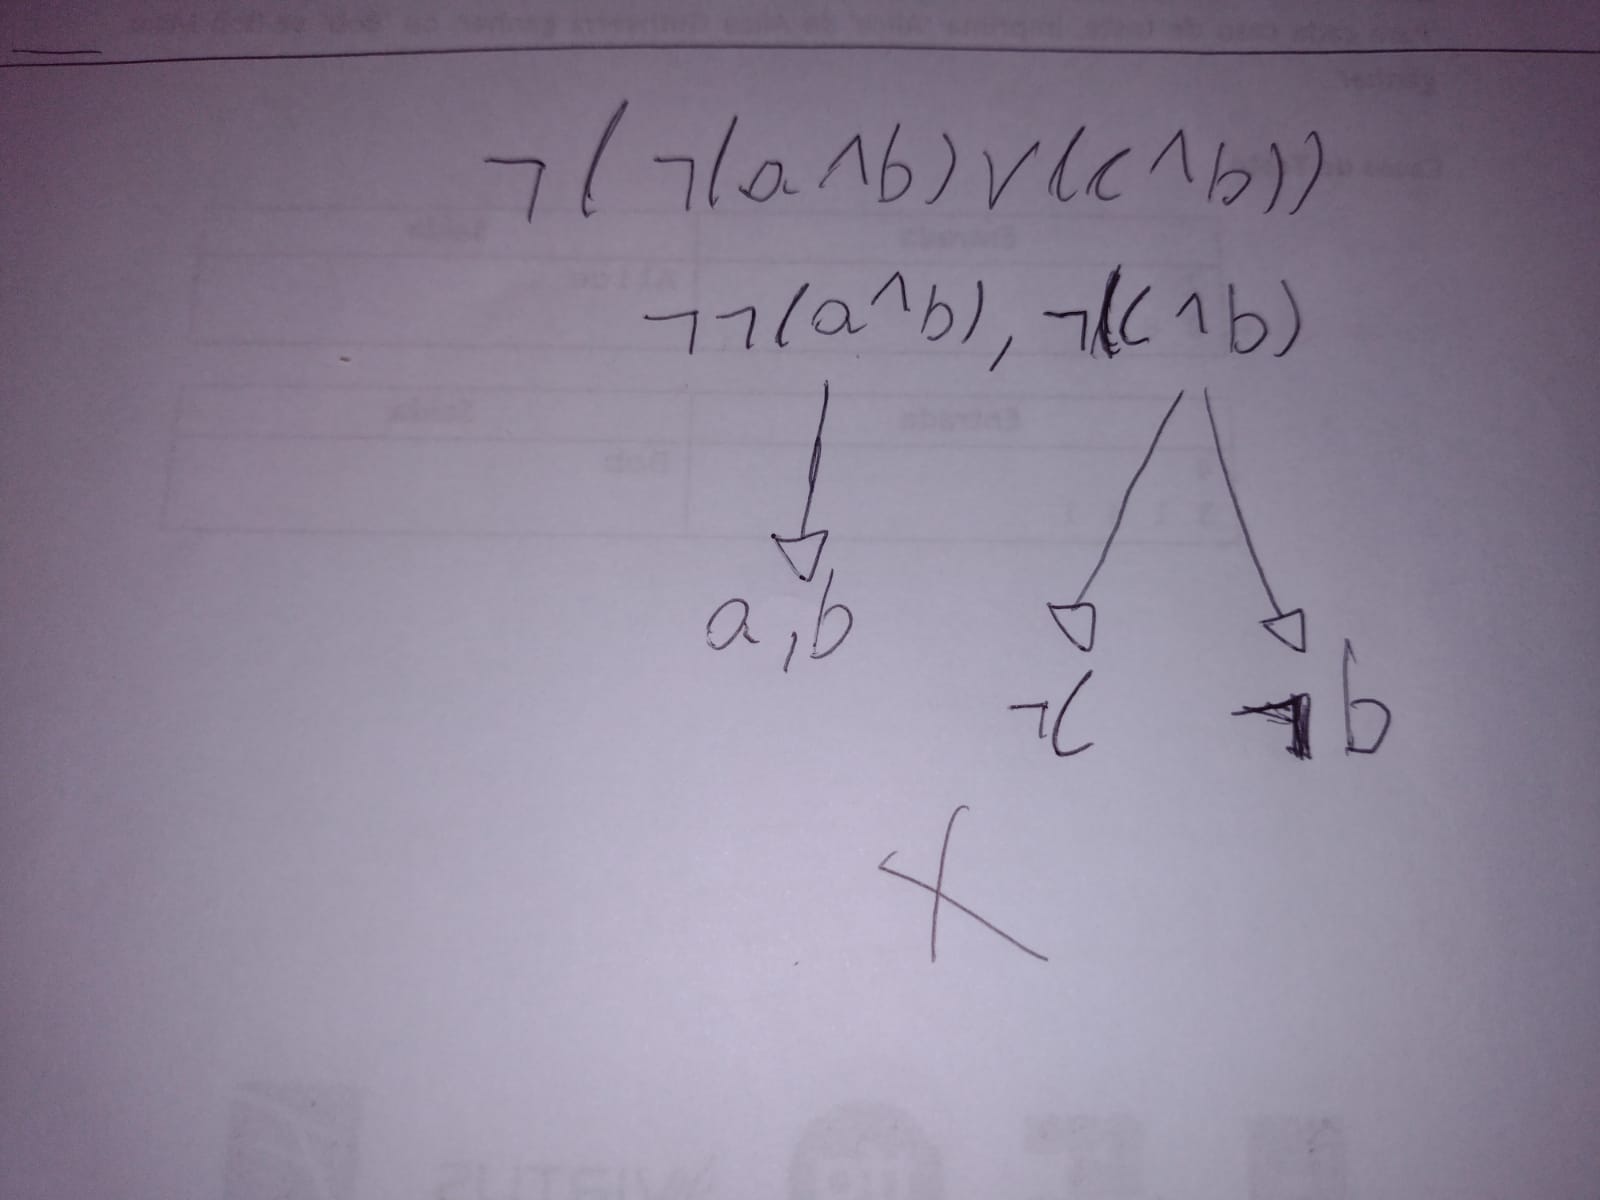 ¬(¬(a^b)v(c^b))
¬¬(a^b), ¬(c^b)
a,b
¬c ¬b